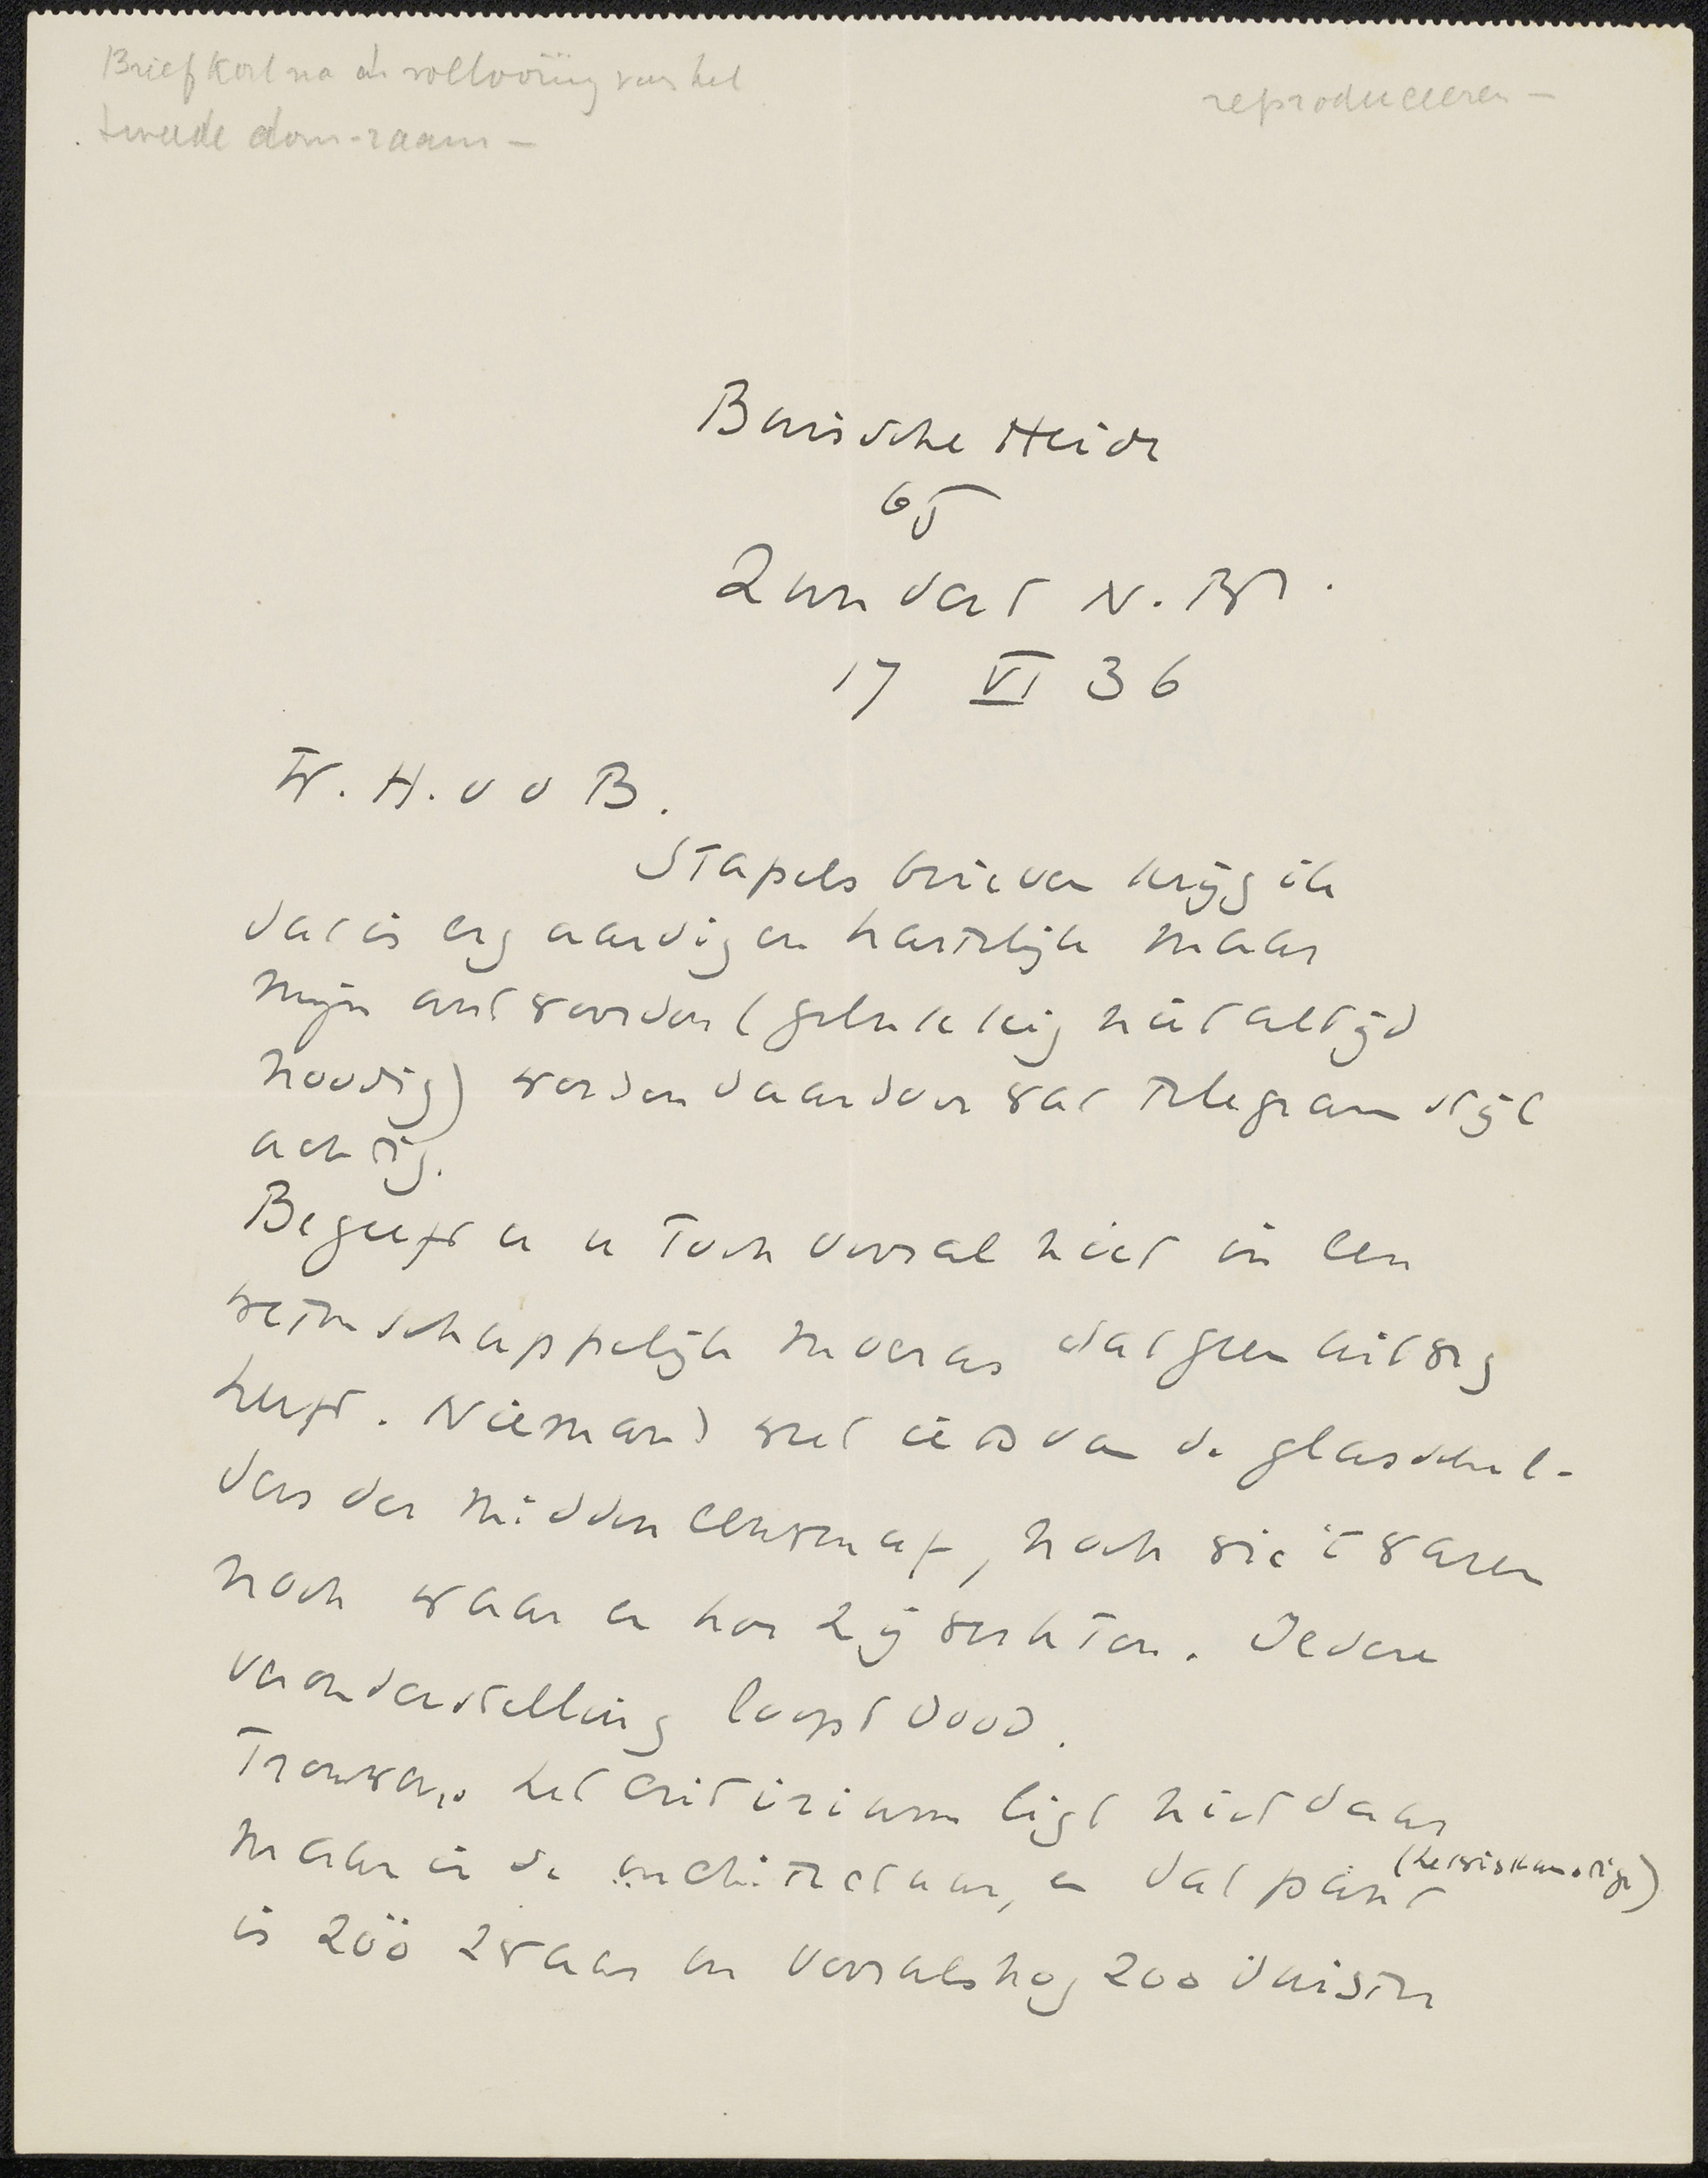 Brief kort na de voltooiing van het
tweede dom-raam —
reproduceeren —
Buische Heide
65
Zundert N. Br.
17 VI 36
W. H. v d B.
Stapels brieven krijg ik
dat is erg aardig en hartelijk maar
mijn antwoorden (gelukkig niet altijd
noodig) worden daardoor wat telegram stijl
achtig.
Begeeft u u toch vooral niet in een
wetenschappelijk moeras dat geen uitweg
heeft. Niemand weet iets van de glasschil-
ders der midden eeuwen af, noch wie 't waren
noch waar en hoe zij werkten. Iedere
veronderstelling loopt dood.
Trouwens het criterium ligt niet daar
maar in de architectuur, en dat punt (het wiskunstige)
is zóó zwaar en vooralsnog zoo duister